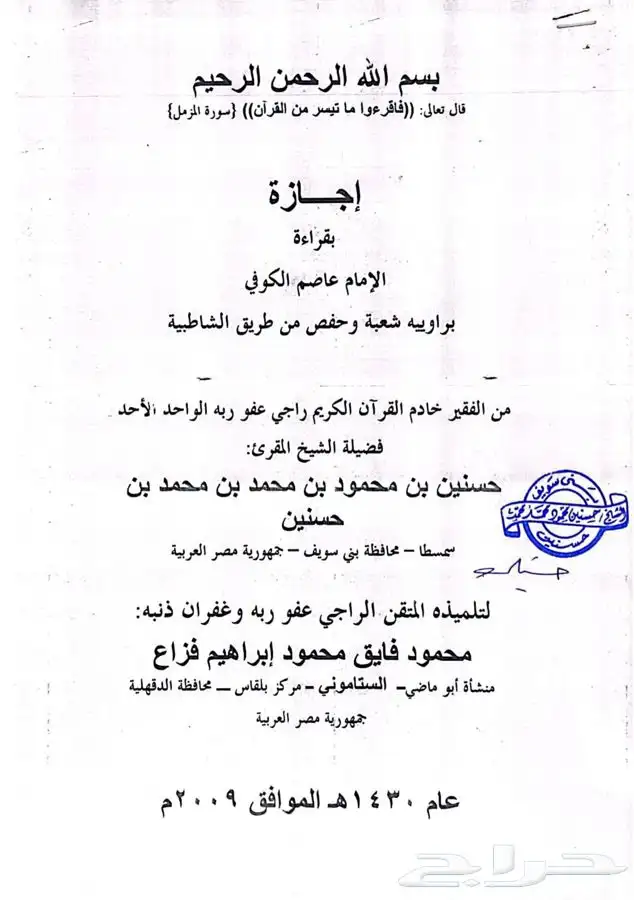 بسم الله الرحمن الرحيم
قال تعالى: ((فاقرءوا ما تيسر من القرآن)) {سورة المزمل}
إجــازة
بقراءة
الإمام عاصم الكوفي
براوييه شعبة وحفص من طريق الشاطبية
من الفقير خادم القرآن الكريم راجي عفو ربه الواحد الأحد
فضيلة الشيخ المقرئ:
حسنين بن محمود بن محمد بن محمد بن
حسنين
سمسطا – محافظة بني سويف – جمهورية مصر العربية
بنى سويف
الشيخ/حسنين محمود محمد محمد
حسنين
لتلميذه المتقن الراجي عفو ربه وغفران ذنبه:
محمود فايق محمود إبراهيم فزاع
منشأة أبو ماضي – الستاموني – مركز بلقاس – محافظة الدقهلية
جمهورية مصر العربية
عام ١٤٣٠هـ الموافق ٢٠٠٩م
حراج